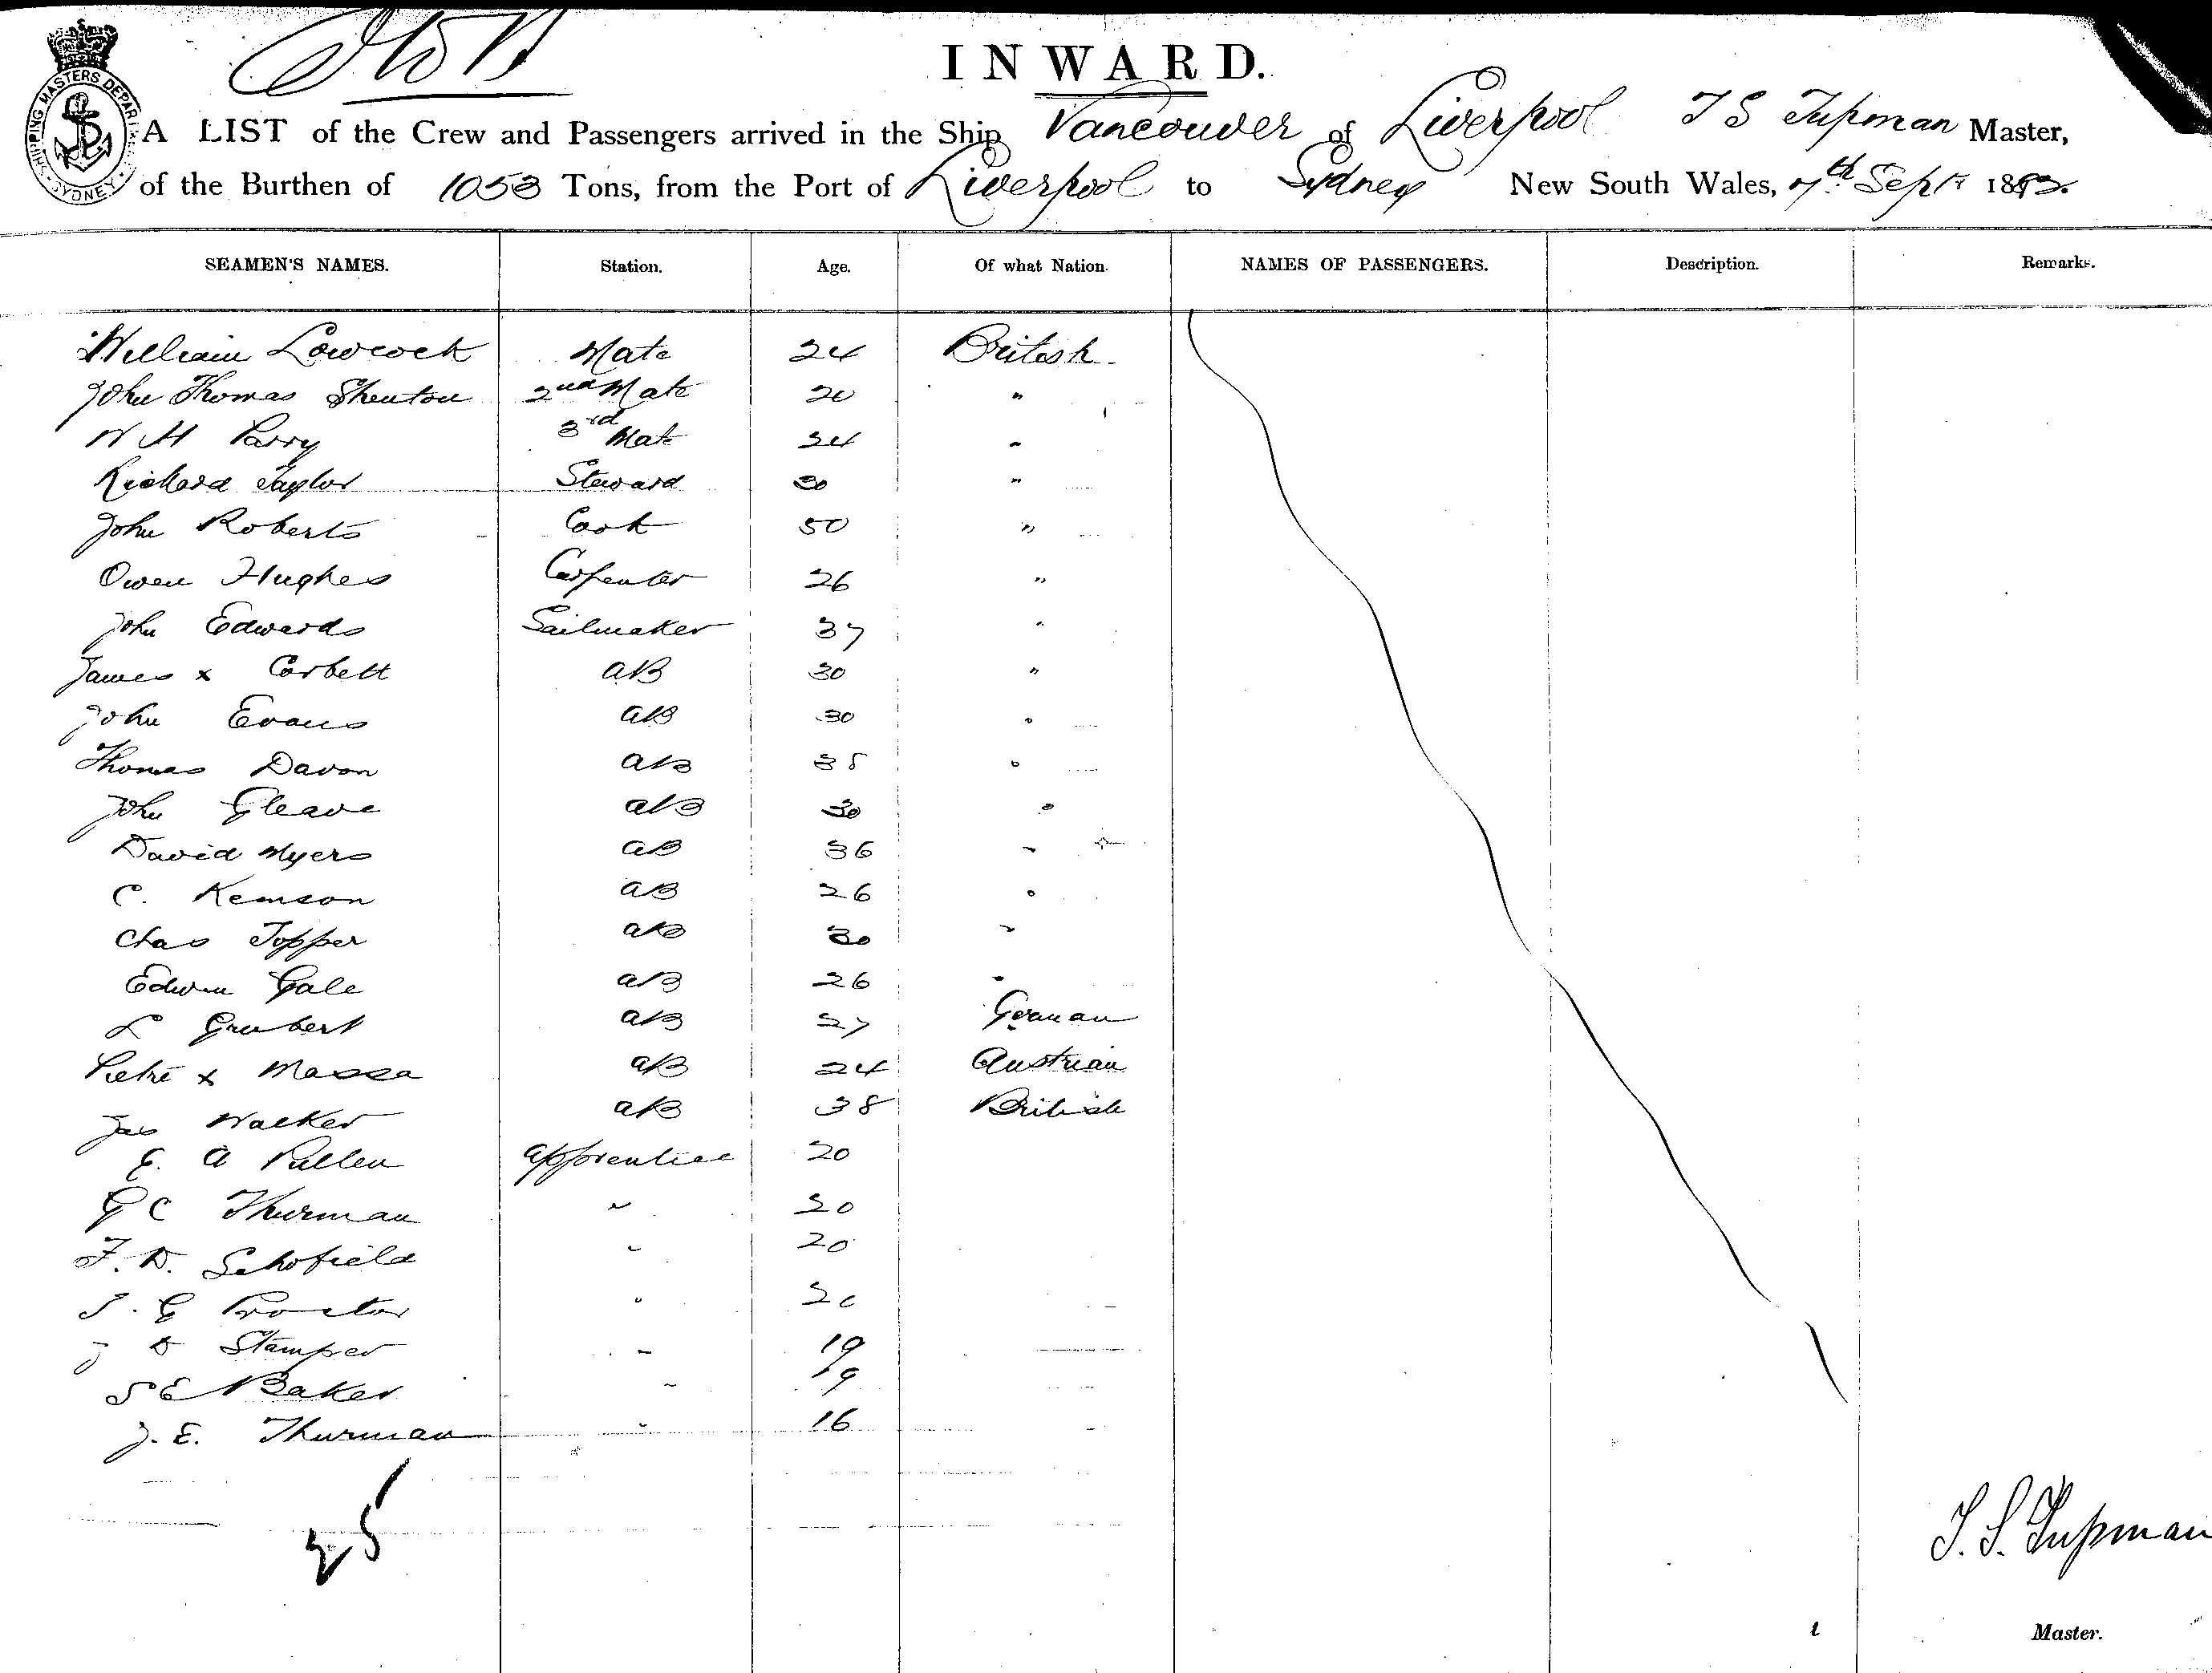 INWARD.
SHIPPING MASTERS DEPARTMENT SYDNEY
A LIST of the Crew and Passengers arrived in the Ship Vancouver of Liverpool T S Tupman Master,
of the Burthen of 1053 Tons, from the Port of Liverpool to Sydney New South Wales, 7th Sept 188
SEAMEN'S NAMES. Station. Age. Of what Nation. NAMES OF PASSENGERS. Description. Remarks.
William Lowcock Mate 24 British
John Thomas Shenton 2nd Mate 20 "
W H Parry 3rd Mate 24 "
Richard Taylor Steward 30 "
John Roberts Cook 50 "
Owen Hughes Carpenter 26 "
John Edwards Sailmaker 37 "
James x Corbett AB 30 "
John Evans AB 30 "
Thomas Davon AB 35 "
John Gleave AB 30 "
David Myers AB 36 "
C. Kemson AB 26 "
Chas Topper AB 30 "
Edwin Gale AB 26 "
L Grubert AB 27 German
Pietri x Massa AB 24 Austrian
Jas Walker AB 38 British
E. A Pullen Apprentice 20
G C Thurman " 20
F. D. Schofield " 20
J. G Proctor " 20
J D Stamper " 19
S E Baker " 19
J. E. Thurman " 16
25
T. S. Tupman
Master.